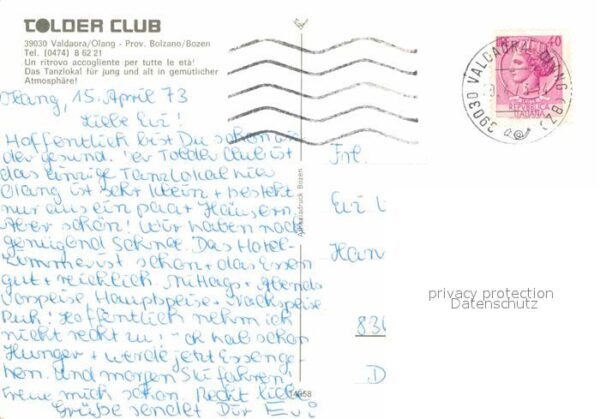 TOLDER CLUB
39030 Valdaora/Olang - Prov. Bolzano/Bozen
Tel. (0474) 8 62 21
Un ritrovo accogliente per tutte le età!
Das Tanzlokal für jung und alt in gemütlicher
Atmosphäre!
Olang, 15. April 73
Liebe Evi!
Hoffentlich bist Du schon wie
der gesund. Der Tolder Club ist
das einzige Tanzlokal hier
Olang ist sehr klein + besteht
nur aus ein paar Häusern.
Aber schön! Wir haben noch
genügend Schnee. Das Hotel-
zimmer ist schön + das Essen
gut + reichlich. Mittags + abends
Vorspeise Hauptspeise + Nachspeise
Puh! Hoffentlich nehm ich
nicht recht zu! Ich hab schon
Hunger + werde jetzt Essen ge-
hen. Und morgen Ski fahren
Freue mich schon. Recht liebe
Grüße sendet Dir Evi
Frl.
Evi
Han
830
D
40
REPUBBLICA
ITALIANA
39030 VALDAORA OLANG (BZ)
privacy protection
Datenschutz